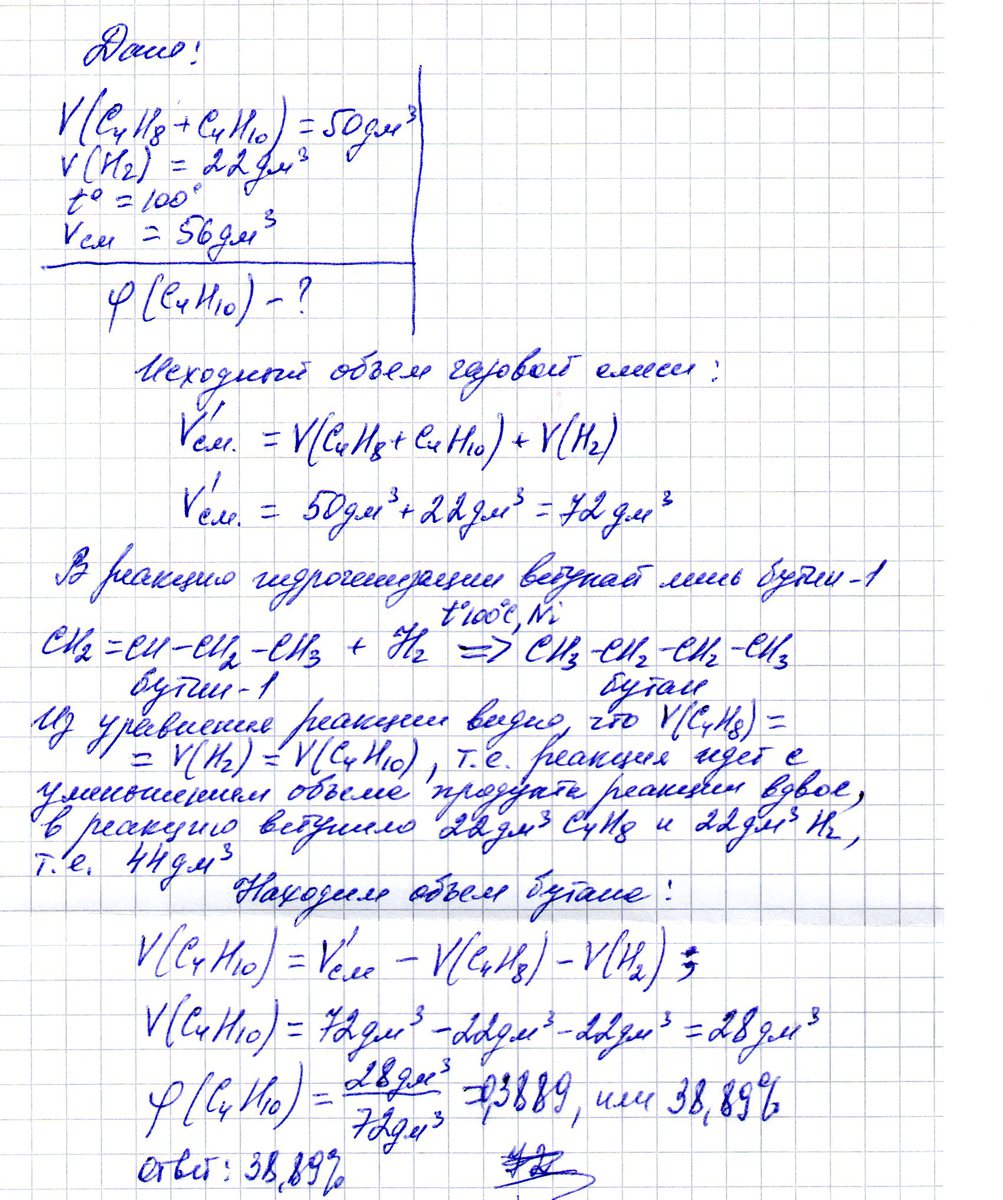 Дано:
V(C₄H₈ + C₄H₁₀) = 50 дм³
V(H₂) = 22 дм³
t° = 100°
Vсм = 56 дм³
φ(C₄H₁₀) - ?
Исходный объем газовой смеси:
V'см. = V(C₄H₈ + C₄H₁₀) + V(H₂)
V'см. = 50 дм³ + 22 дм³ = 72 дм³
В реакцию гидрогенизации вступает лишь бутен-1
t°100°C, Ni
CH₂ = CH - CH₂ - CH₃ + H₂ => CH₃ - CH₂ - CH₂ - CH₃
бутен-1 бутан
Из уравнения реакции видно, что V(C₄H₈) =
= V(H₂) = V(C₄H₁₀), т.е. реакция идет с
уменьшением объема продукта реакции вдвое,
в реакцию вступило 22 дм³ C₄H₈ и 22 дм³ H₂,
т.е. 44 дм³
Находим объем бутана:
V(C₄H₁₀) = V'см - V(C₄H₈) - V(H₂);
V(C₄H₁₀) = 72 дм³ - 22 дм³ - 22 дм³ = 28 дм³
φ(C₄H₁₀) = 28 дм³ / 72 дм³ = 0,3889, или 38,89%
Ответ: 38,89%